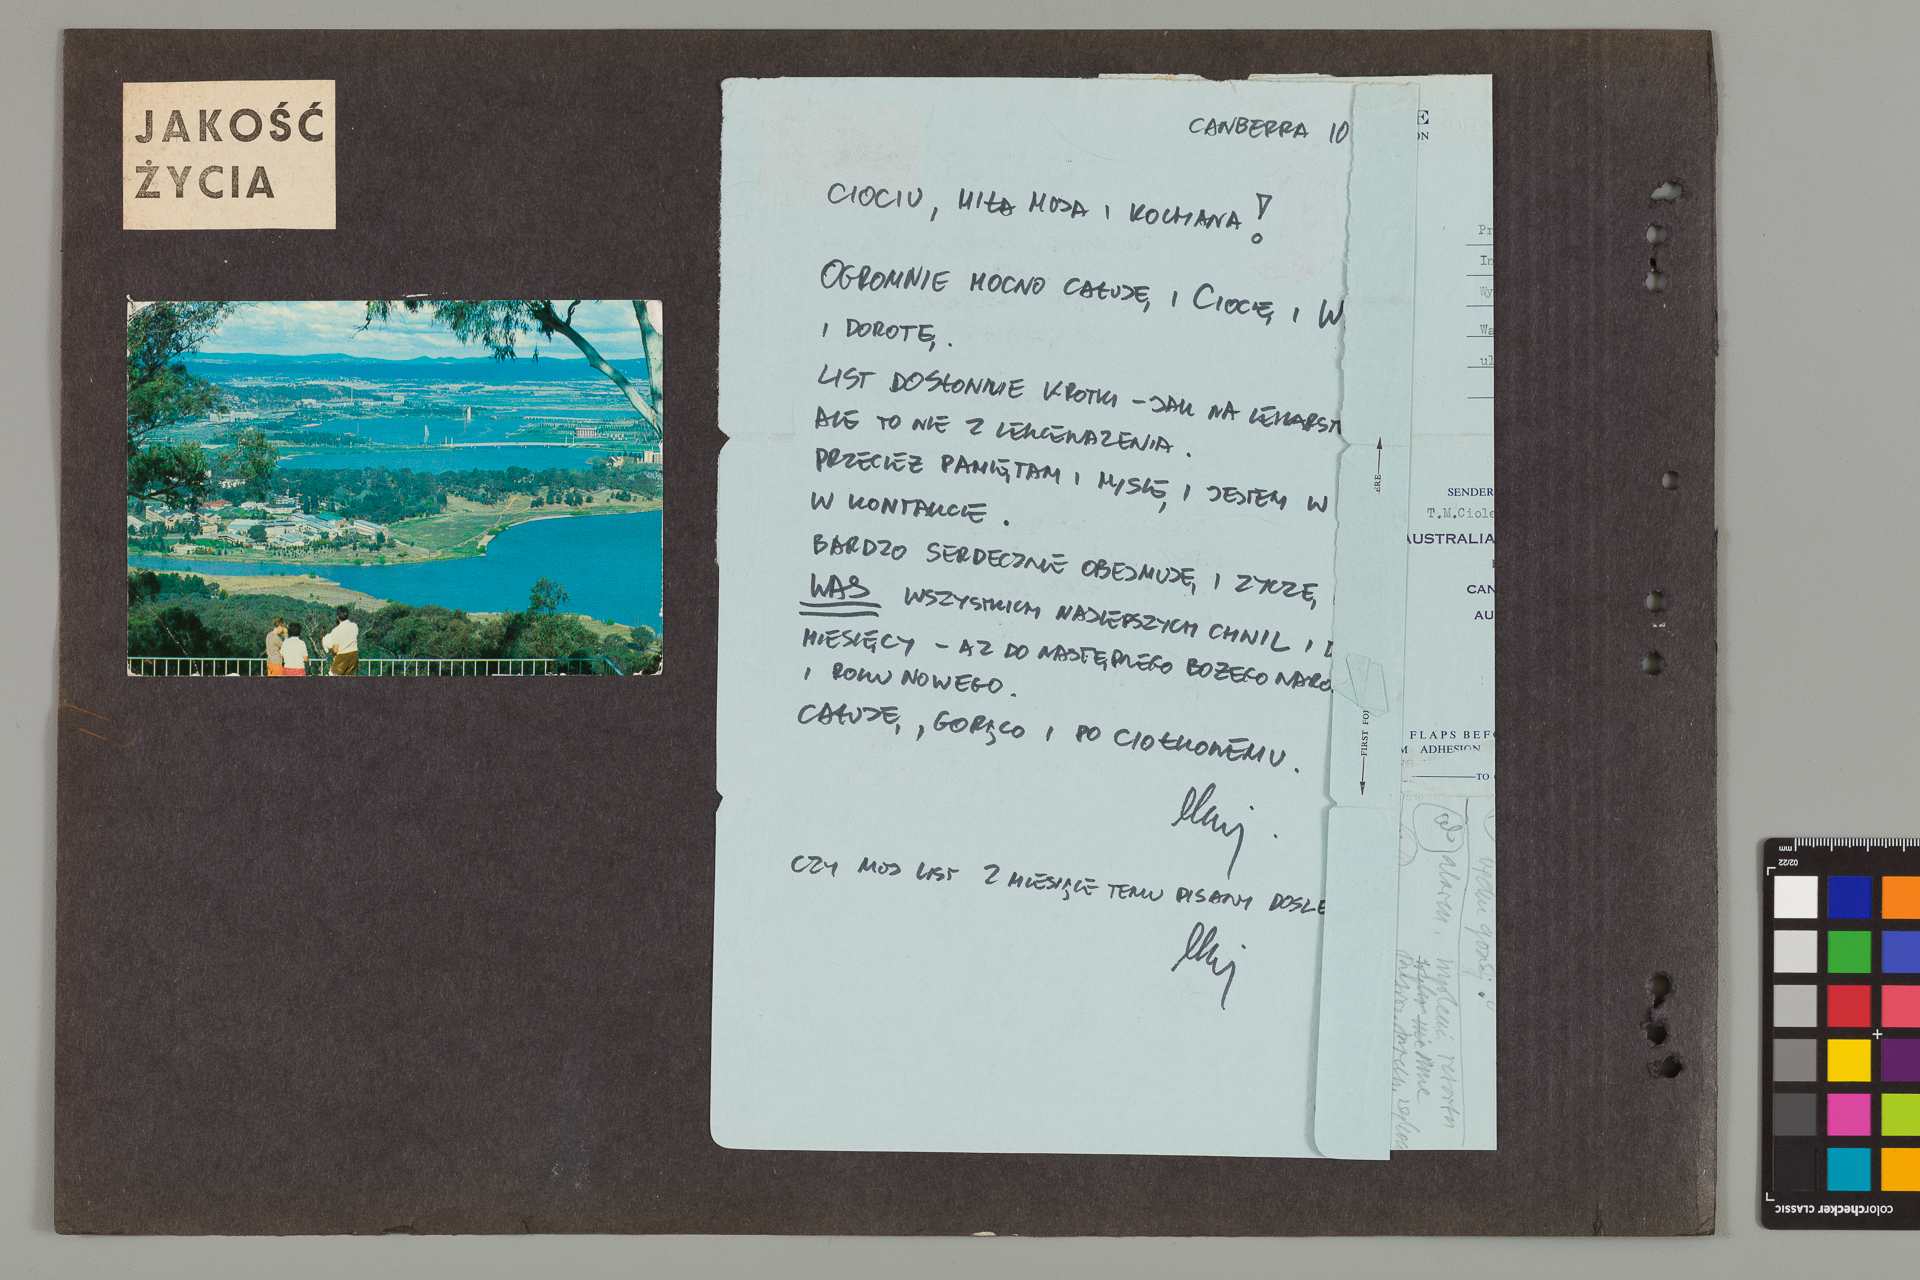 JAKOŚĆ
ŻYCIA
CANBERRA 10
CIOCIU, MIŁA MOJA I KOCHANA!
OGROMNIE MOCNO CAŁUJĘ, I CIOCIĘ, I W
I DOROTĘ.
LIST DOSŁOWNIE KROTKI – JAK NA LEKARST
ALE TO NIE Z LEKCEWAZENIA.
PRZECIEZ PAMIĘTAM I MYSLĘ, I JESTEM W
W KONTAKCIE.
BARDZO SERDECZNIE OBEJMUJĘ, I ZYCZĘ,
WAS WSZYSTKICH NAJLEPSZYCH CHWIL I D
MIESIĘCY – AZ DO NASTĘPNEGO BOZEGO NARO
I ROKU NOWEGO.
CAŁUJĘ, GORĄCO I PO CIOŁKOWEMU.
CZY MOJ LIST 2 MIESIĄCE TEMU PISANY DOSZE
E
ON
Pr
In
Wy
Wa
ul
ERE
SENDER
T.M.Ciołe
AUSTRALIA
CAN
AU
FIRST FOL
FLAPS BEFO
M ADHESION
TO
alarm.
mm
02/22
colorchecker CLASSIC